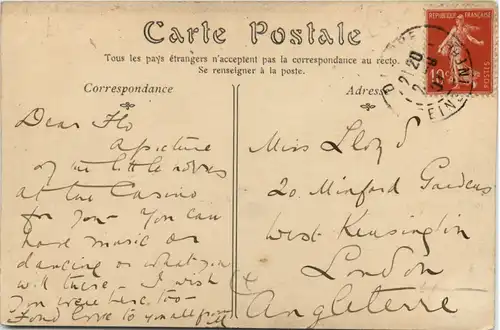 Carte Postale
Tous les pays étrangers n'acceptent pas la correspondance au recto.
Se renseigner à la poste.
Correspondance
Dear Flo
A picture
of the little
at the Casino
for you - You can
have music or
dancing or what you
will there - I wish
you were here too -
Fond love to you all from
Adresse
Miss Lloyd
20 Minford Gardens
West Kensington
London
Angleterre
REPUBLIQUE FRANÇAISE
10c
POSTES